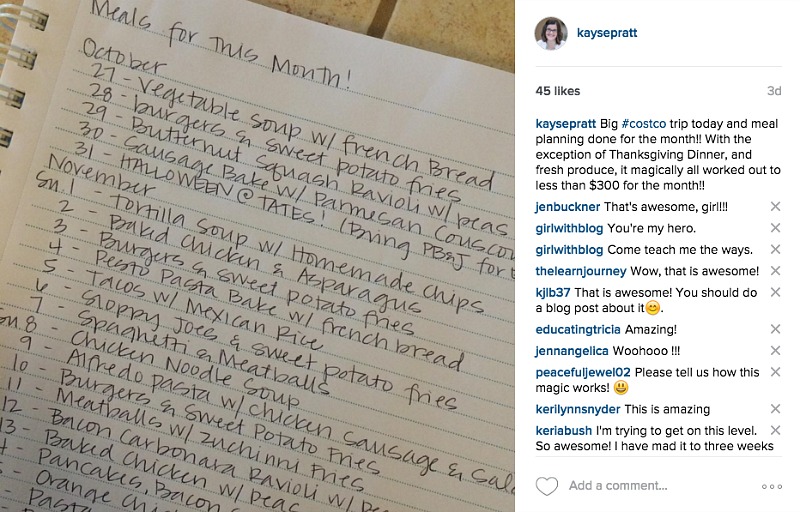 Meals for This Month!
October
27 - Vegetable Soup w/ french Bread
28 - burgers & sweet potato fries
29 - Butternut Squash Ravioli w/ peas
30 - Sausage Bake w/ Parmesan Couscou
31 - HALLOWEEN @ TATES! (Bring PB&J for
November
Sn. 1 - Tortilla Soup w/ Homemade chips
2 - Baked Chicken & Asparagus
3 - Burgers & sweet potato fries
4 - Pesto Pasta Bake w/ french bread
5 - Tacos w/ Mexican Rice
6 - Sloppy Joes & sweet potato fries
7 - Spaghetti & Meatballs
Sn. 8 - Chicken Noodle Soup
9 - Alfredo Pasta w/ chicken sausage & Sal
10 - Burgers & Sweet Potato Fries
11 - Meatballs w/ zuchinni Fries
12 - Bacon Carbonara Ravioli w/ pe
13 - Baked Chicken w/ peas
Pancakes, Bacon
Orange Chi
Pasta
kaysepratt
45 likes 3d
kaysepratt Big #costco trip today and meal
planning done for the month!! With the
exception of Thanksgiving Dinner, and
fresh produce, it magically all worked out to
less than $300 for the month!!
jenbuckner That's awesome, girl!!!
girlwithblog You're my hero.
girlwithblog Come teach me the ways.
thelearnjourney Wow, that is awesome!
kjlb37 That is awesome! You should do
a blog post about it😊.
educatingtricia Amazing!
jennangelica Woohooo !!!
peacefuljewel02 Please tell us how this
magic works! 😃
kerilynnsnyder This is amazing
keriabush I'm trying to get on this level.
So awesome! I have mad it to three weeks
Add a comment...